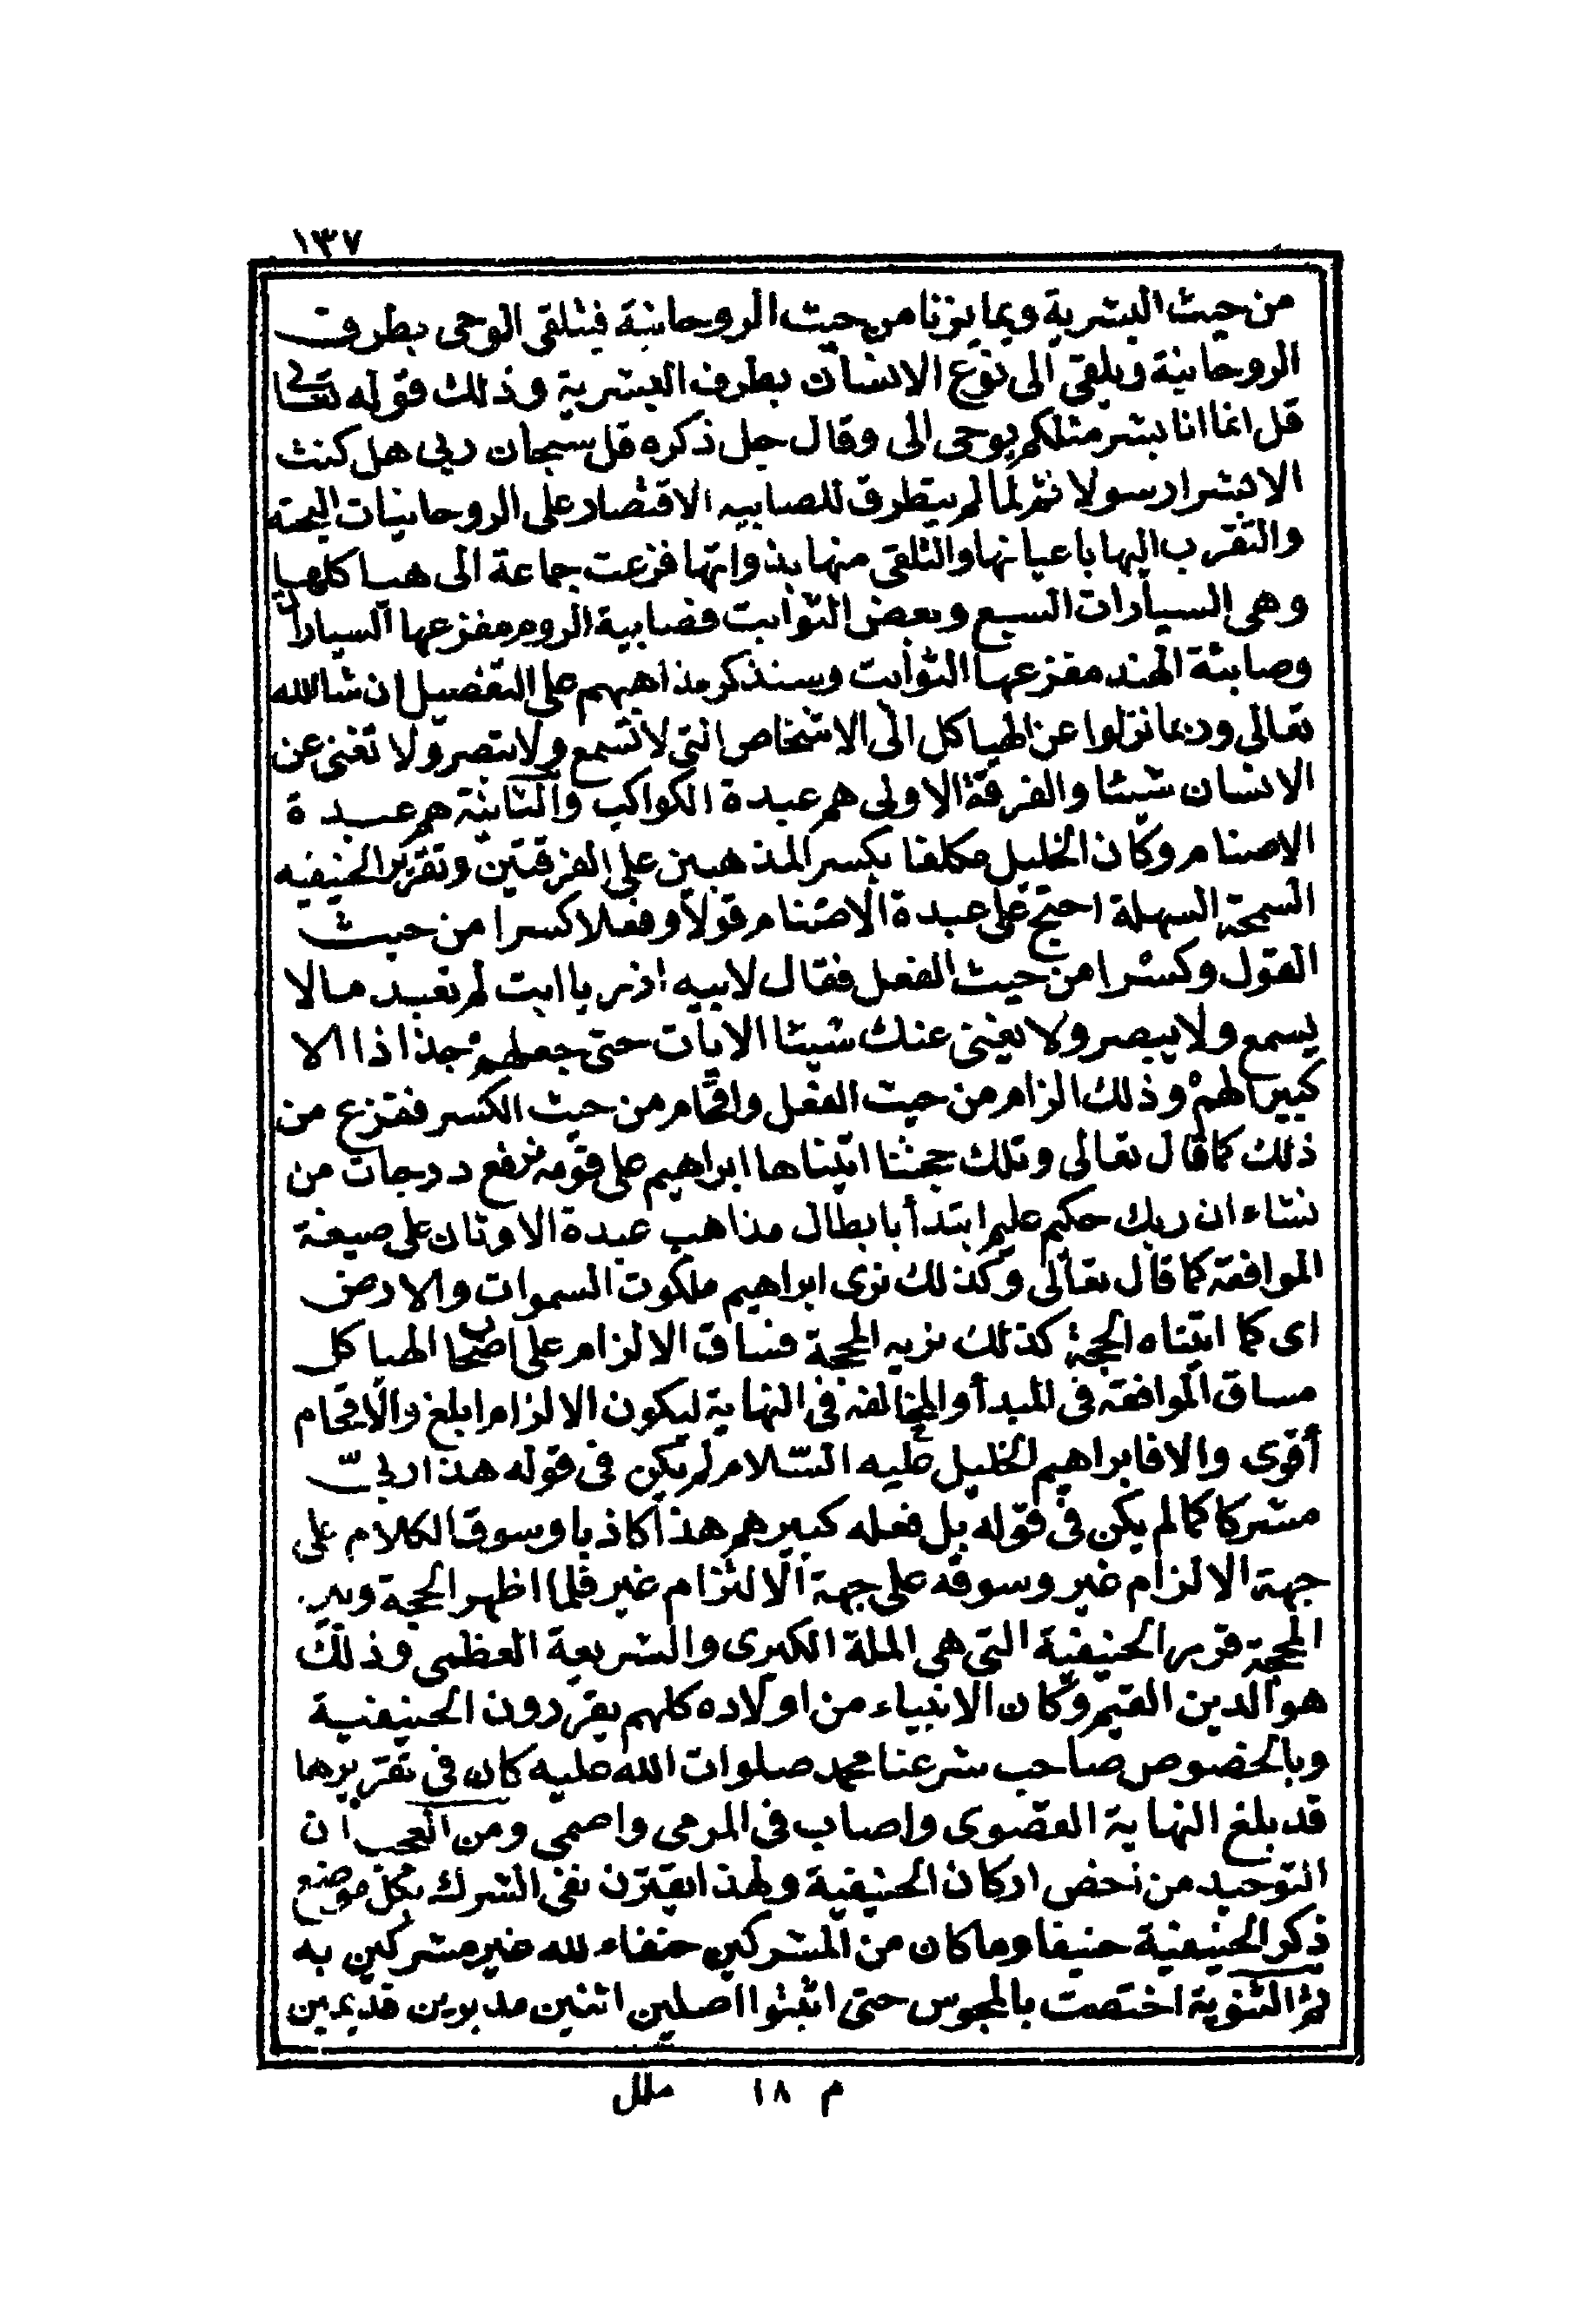 ١٣٧
من حيث البشرية ويمايزنا من حيث الروحانية فيتلقى الوحى بطرف
الروحانية ويلقى الى نوع الانسان بطرف البشرية وذلك قوله تعالى
قل انما انا بشر مثلكم يوحى الى وقال جل ذكره قل سبحان ربى هل كنت
الا بشرا رسولا ثم لما لم يتطرق للصابيه الاقتصار على الروحانيات البحتة
والتقرب اليها باعيانها والتلقى منها بذواتها فزعت جماعة الى هياكلها
وهى السيارات السبع وبعض الثوابت فصابية الروم مفزعها السيارات
وصابئة الهند مفزعها الثوابت وسنذكر مذاهبهم على التفصيل ان شا الله
تعالى وربما نزلوا عن الهياكل الى الاشخاص التى لا تسمع ولا تبصر ولا تغنى عن
الانسان شيئا والفرقة الاولى هم عبدة الكواكب والثانية هم عبدة
الاصنام وكان الخليل مكلفا بكسر المذهبين على الفرقتين وتقرير الحنيفيه
السمحة السهلة احتج على عبدة الاصنام قولا وفعلا كسرا من حيث
القول وكسرا من حيث الفعل فقال لابيه اذر يا ابت لم تعبد مالا
يسمع ولا يبصر ولا يغنى عنك شيئا الايات حتى جعلهم جذاذا الا
كبيرا لهم وذلك الزام من حيث الفعل وافحام من حيث الكسر ففزع من
ذلك كما قال تعالى وتلك حجتنا اتيناها ابراهيم على قومه نرفع درجات من
نشاء ان ربك حكيم عليم ابتدأ بابطال مذاهب عبدة الاوثان على صيغة
الموافقة كما قال تعالى وكذلك نرى ابراهيم ملكوت السموات والارض
اى كما اتيناه الحجة كذلك نريه المحجة فساق الالزام على اصحاب الهياكل
مساق الموافقة فى المبدأ والمخالفة فى النهاية ليكون الالزام ابلغ والافحام
أقوى والا فابراهيم الخليل عليه السلام لم يكن فى قوله هذا ربى
مشركا كما لم يكن فى قوله بل فعله كبيرهم هذا كاذبا وسوق الكلام على
جهة الالزام غير وسوقه على جهة الالتزام غير فلما اظهر الحجة وبين
المحجة قرر الحنيفية التى هى الملة الكبرى والشريعة العظمى وذلك
هو الدين القيم وكان الانبياء من اولاده كلهم يقررون الحنيفية
وبالخصوص صاحب شرعنا محمد صلوات الله عليه كان فى تقريرها
قد بلغ النهاية القصوى واصاب فى المرمى واصمى ومن العجب ان
التوحيد من اخص اركان الحنيفية ولهذا يقترن نفى الشرك بكل موضع
ذكر الحنيفية حنيفا وما كان من المشركين حنفاء لله غير مشركين به
ثم الثنوية اختصت بالمجوس حتى اثبتوا اصلين اثنين مدبرين قديمين
م ١٨ ملل